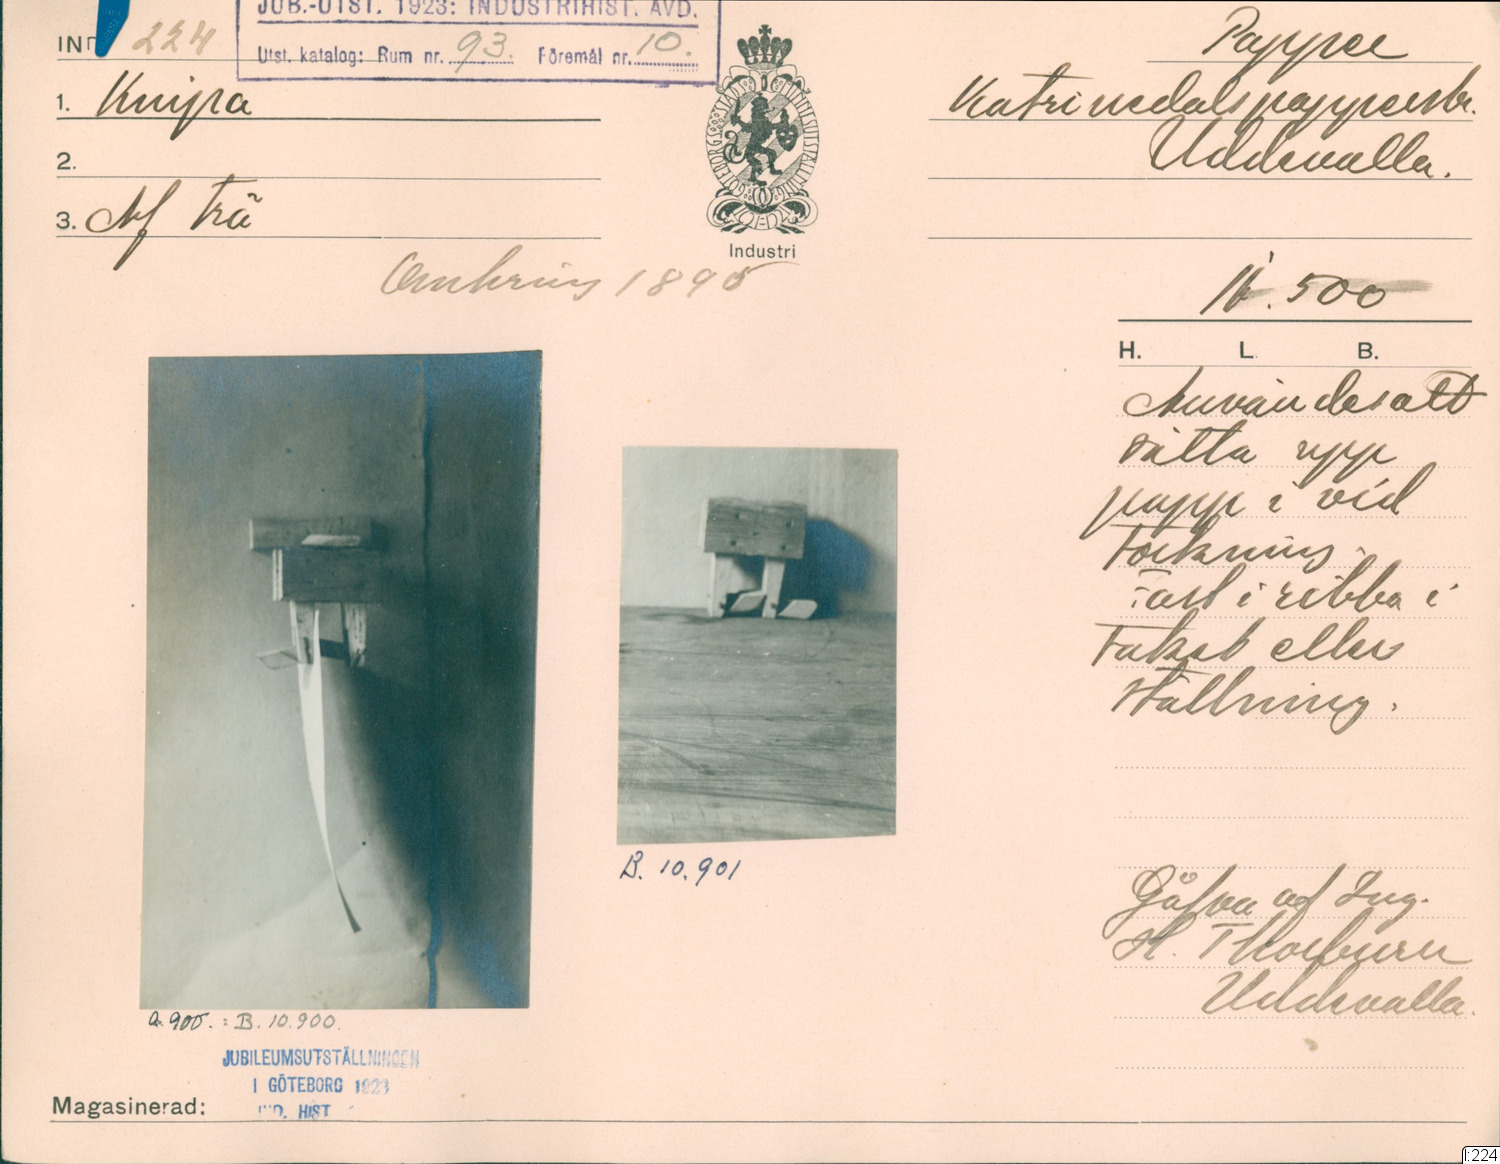 JUB.-UTST. 1923: INDUSTRIHIST. AVD.
Utst. katalog: Rum nr. 93. Föremål nr. 10.
IND 224
1. Knipa
2.
3. Af trä
Omkring 1895
GÖTEBORGS STADS JUBILEUMSUTSTÄLLNING
Industri
Papper
Katrinedals pappersbr.
Uddevalla.
16.500
H. L. B.
Användes att
sätta upp
papp i vid
Torkning.
Fast i ribba i
Taket eller
Ställning.
Gåfva af Ing.
H. Thorburn
Uddevalla.
B. 10.901
a. 905. : B. 10.900.
JUBILEUMSUTSTÄLLNINGEN
I GÖTEBORG 1923
IND. HIST
Magasinerad:
I:224